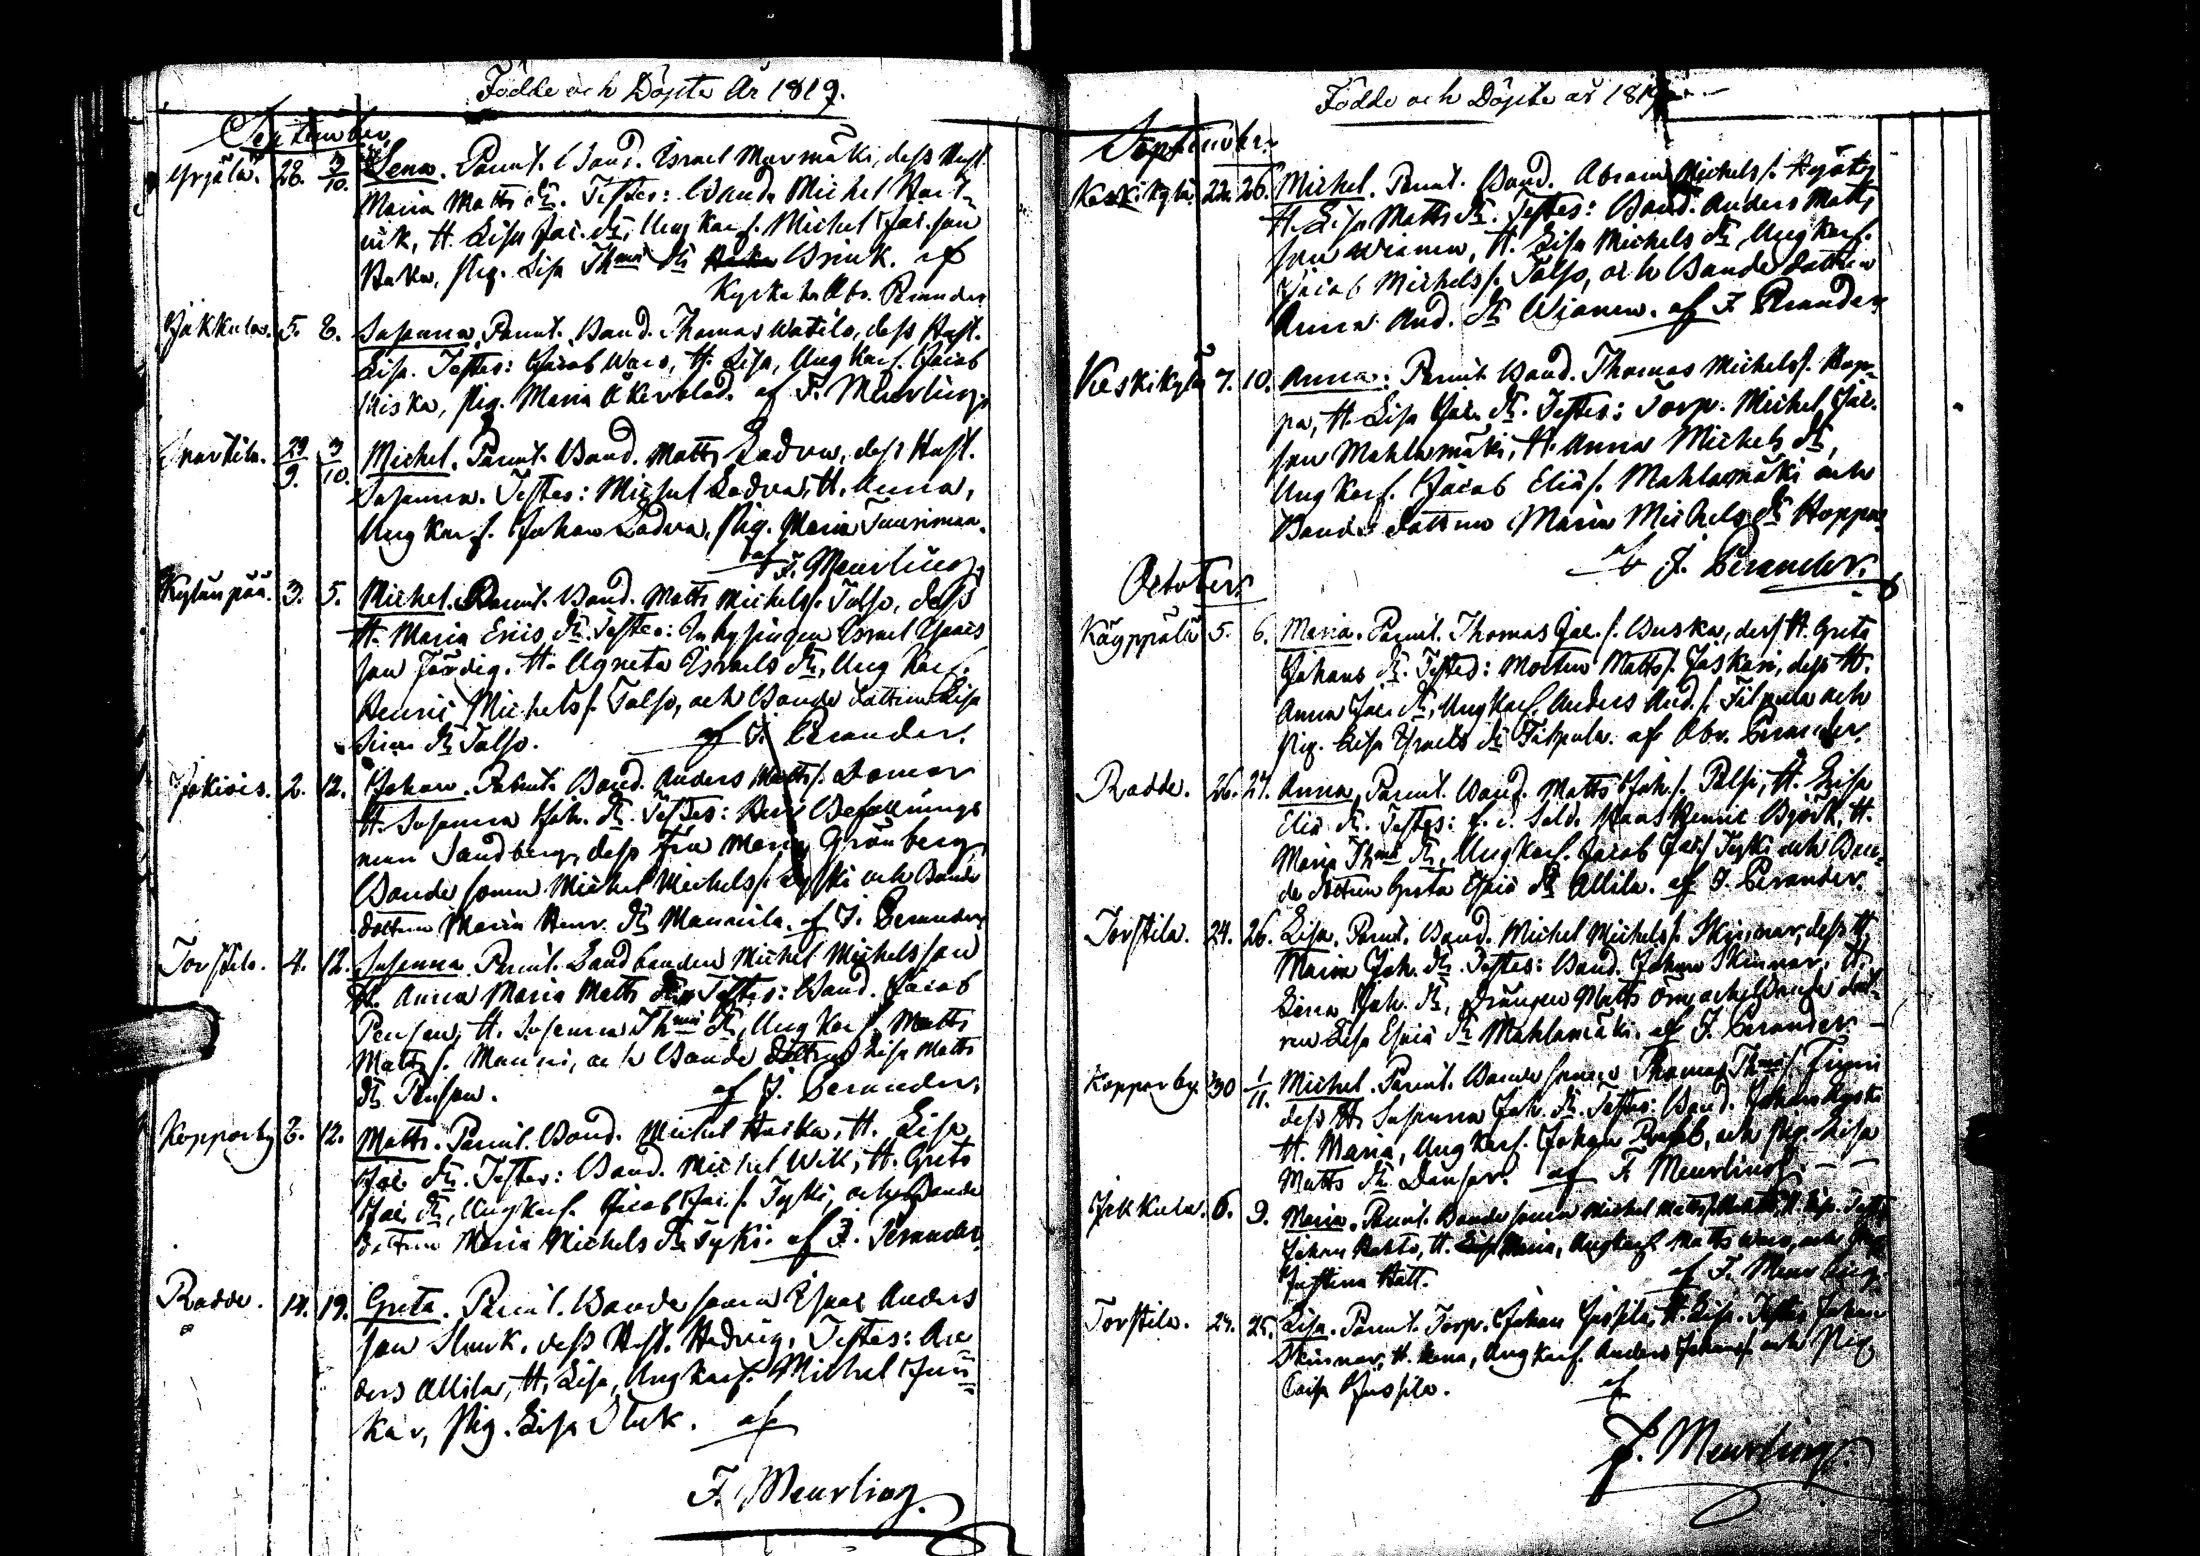 Födde och Döpte År 1819.
September
Yrjälä. 28. 3/10. Lena. Parent. Bond. Israel Murmäki, dess Hust.
Maria Matts dr. Testes: Bond. Michel
H. Lisa Jac. dr, Ung Karl. Michel Jac. son
Pig. Lisa Thoms dr Brink. af
Abr. Perander
Jakkula. 5. 8. Susanna. Parent. Bond. Thomas Watila, dess Hust.
Lisa. Testes: Jacob Waro, H. Lisa, Ung Karl. Jacob
Kiska, Pig. Maria Åkerblad. af F. Meurling.
29/9. 3/10. Michel. Parent. Bond. Matts Ladva, dess Hust.
Susanna. Testes: Michel Ladva, H. Anna,
Ung Karl. Johan Ladva, Pig. Maria
af F. Meurling.
Kylänpää. 3. 5. Michel. Parent. Bond. Matts Michels s. Talso, dess
H. Maria Eriis dr. Testes: Inhysingen Israel Isaacs
son Färdig. H. Agneta Israels dr, Ung Karl.
Henric Michels s. Talso, och Bonde dottren Lisa
dr Talso. af J. Perander.
Jokivis. 2. 12. Johan. Parent. Bond. Anders Matts s.
H. Susanna Joh. dr. Testes: Befallnings
man Sandberg, dess Fru Maria Grönberg,
Bonde sonen Michel Michels s. och Bonde
dottren Maria Henr. dr Mannila. af J. Perander.
Torstila. 4. 12. Susanna. Parent. Landbonden Michel Michelsson
H. Anna Maria Matts dr. Testes: Bond. Jacob
Pensan, H. Susanna Thoms dr, Ung Karl. Matts
Matts s. Manni, och Bonde dottren Lisa Matts
dr Pensan. af J. Perander.
Kopparby 8. 12. Matts. Parent. Bond. Michel Haika, H. Lisa
Jac. dr. Testes: Bond. Michel Will, H. Greta
Jac. dr, Ung Karl. Jacob Jac. s. Tyski, och Bonde
dottren Maria Michels dr Tyski. af J. Perander.
Radde. 14. 19. Greta. Parent. Bonde sonen Isaac Anders
son Sluk, dess Hust. Hedvig. Testes: An=
ders Allila, H. Lisa, Ung Karl. Michel Jun=
kar, Pig. Lisa Sluk. af
F. Meurling.
Födde och Döpte år 1819
September
Keskikylä 22. 26. Michel. Parent. Bond. Abram Michels s.
H. Lisa Matts dr. Testes: Bond. Anders Matts
son Wianen, H. Lisa Michels dr, Ung Karl.
Jacob Michels s. Talso, och Bonde dottren
Anna And. dr Wianen. af J. Perander.
Keskikylä 7. 10. Anna. Parent. Bond. Thomas Michels s. Hop=
pa, H. Lisa Jac. dr. Testes: Torp. Michel Jac.
son Mahlamäki, H. Anna Michels dr,
Ung Karl. Jacob Elia s. Mahlamäki och
Bonde dottren Maria Michels dr Hoppa
af J. Perander.
October
Käyppälä 5. 6. Maria. Parent. Thomas Jac. s. Buska, dess H. Greta
Johans dr. Testes: Morten Matts s. Jaskari, dess H.
Anna Jac. dr, Ung Karl. Anders And. s. Filpula och
Pig. Lisa Israels dr Filpula. af Abr. Perander.
Radde. 26. 27. Anna. Parent. Bond. Matts Joh. s. Palsi, H. Lisa
Elia dr. Testes: f. d. Sold. Henric Björk, H.
Maria Thoms dr, Ung Karl. Jacob Jac. s. Tyski och Bon=
de dottren Greta Esaia dr Allila. af J. Perander.
Torstila. 24. 26. Lisa. Parent. Bond. Michel Michels s. Skinnar, dess H.
Maria Joh. dr. Testes: Bond. Johan Skinnar, H.
Lena Joh. dr, Drängen Matts Örn, och Bonde dott=
ren Lisa Esaia dr Mahlamäki. af J. Perander.
Kopparby. 30 1/11. Michel. Parent. Bonde sonen Thomas Thoms s.
dess H. Susanna Joh. dr. Testes: Bond. Johan
H. Maria, Ung Karl. Johan och Pig. Lisa
Matts dr Dansar. af F. Meurling.
Jakkula. 6. 9. Maria. Parent. Bonde sonen Michel Matts s. H. Lisa. Testes
Johan Rahko, H. Maria, Ung Karl. Matts Waro, och Pig.
Justina Hatt. af F. Meurling.
Torstila. 24. 25. Lisa. Parent. Torp. Johan Jussila, H. Lisa. Testes Johan
Skinnar, H. Lena, Ung Karl. Anders Johans s. och Pig.
Caisa Jussila. af
F. Meurling.